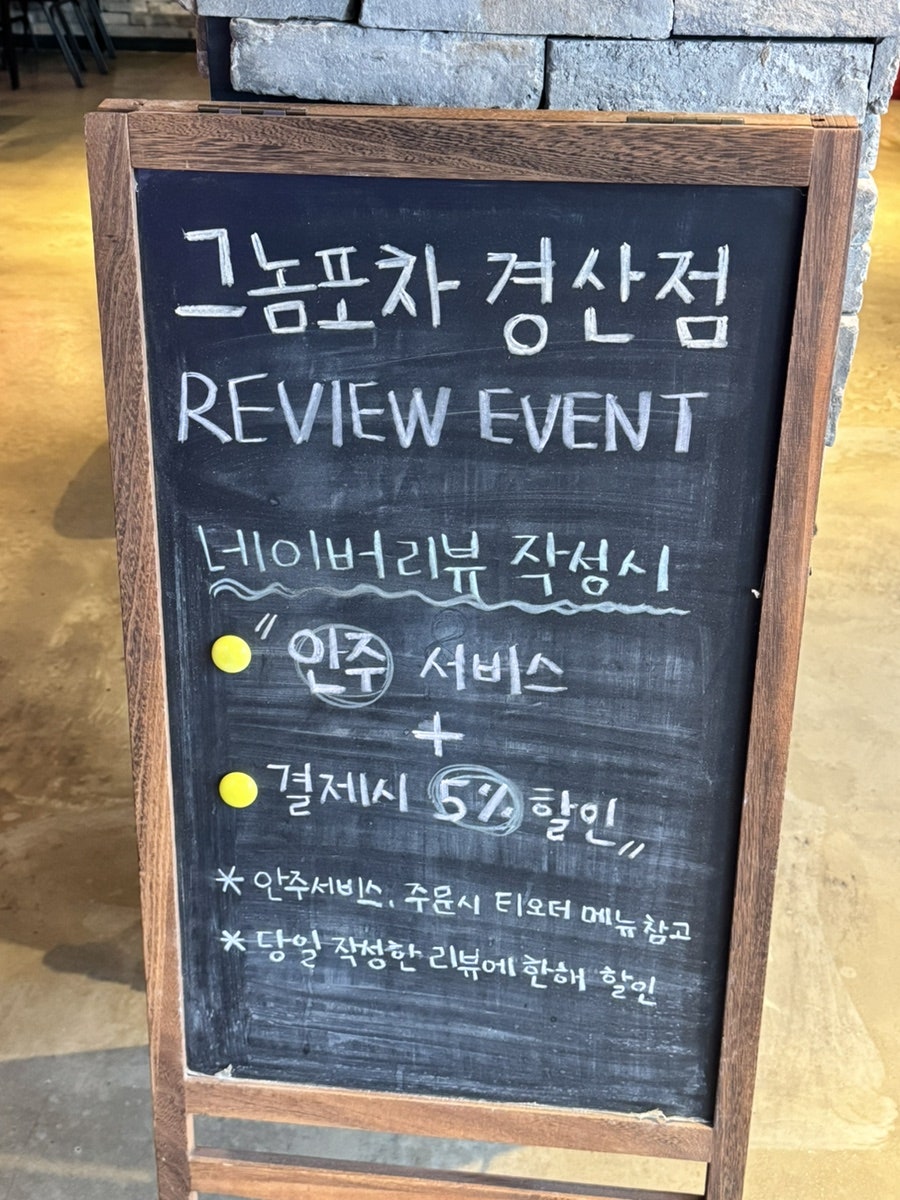 그놈포차 경산점
REVIEW EVENT
네이버리뷰 작성시
〃안주 서비스
+
결제시 5% 할인〃
* 안주서비스, 주문시 티오더 메뉴 참고
* 당일 작성한 리뷰에 한해 할인